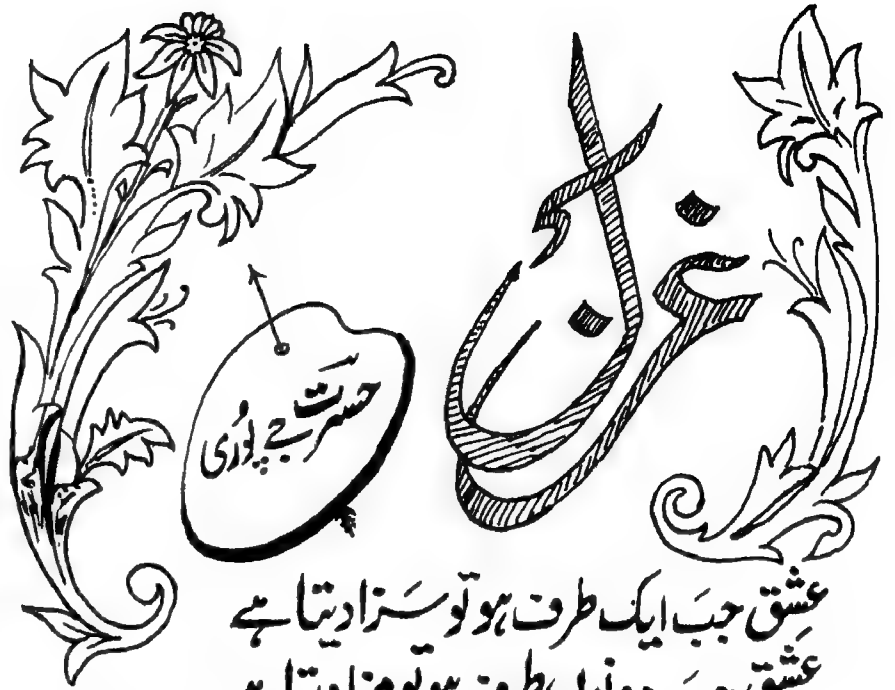 غزل
حسرت جے پوری
عِشق جبَ ایک طرف ہو تو سَزا دیتا ہے
عِشق جبَ دونوں طرف ہو تو مزا دیتا ہے